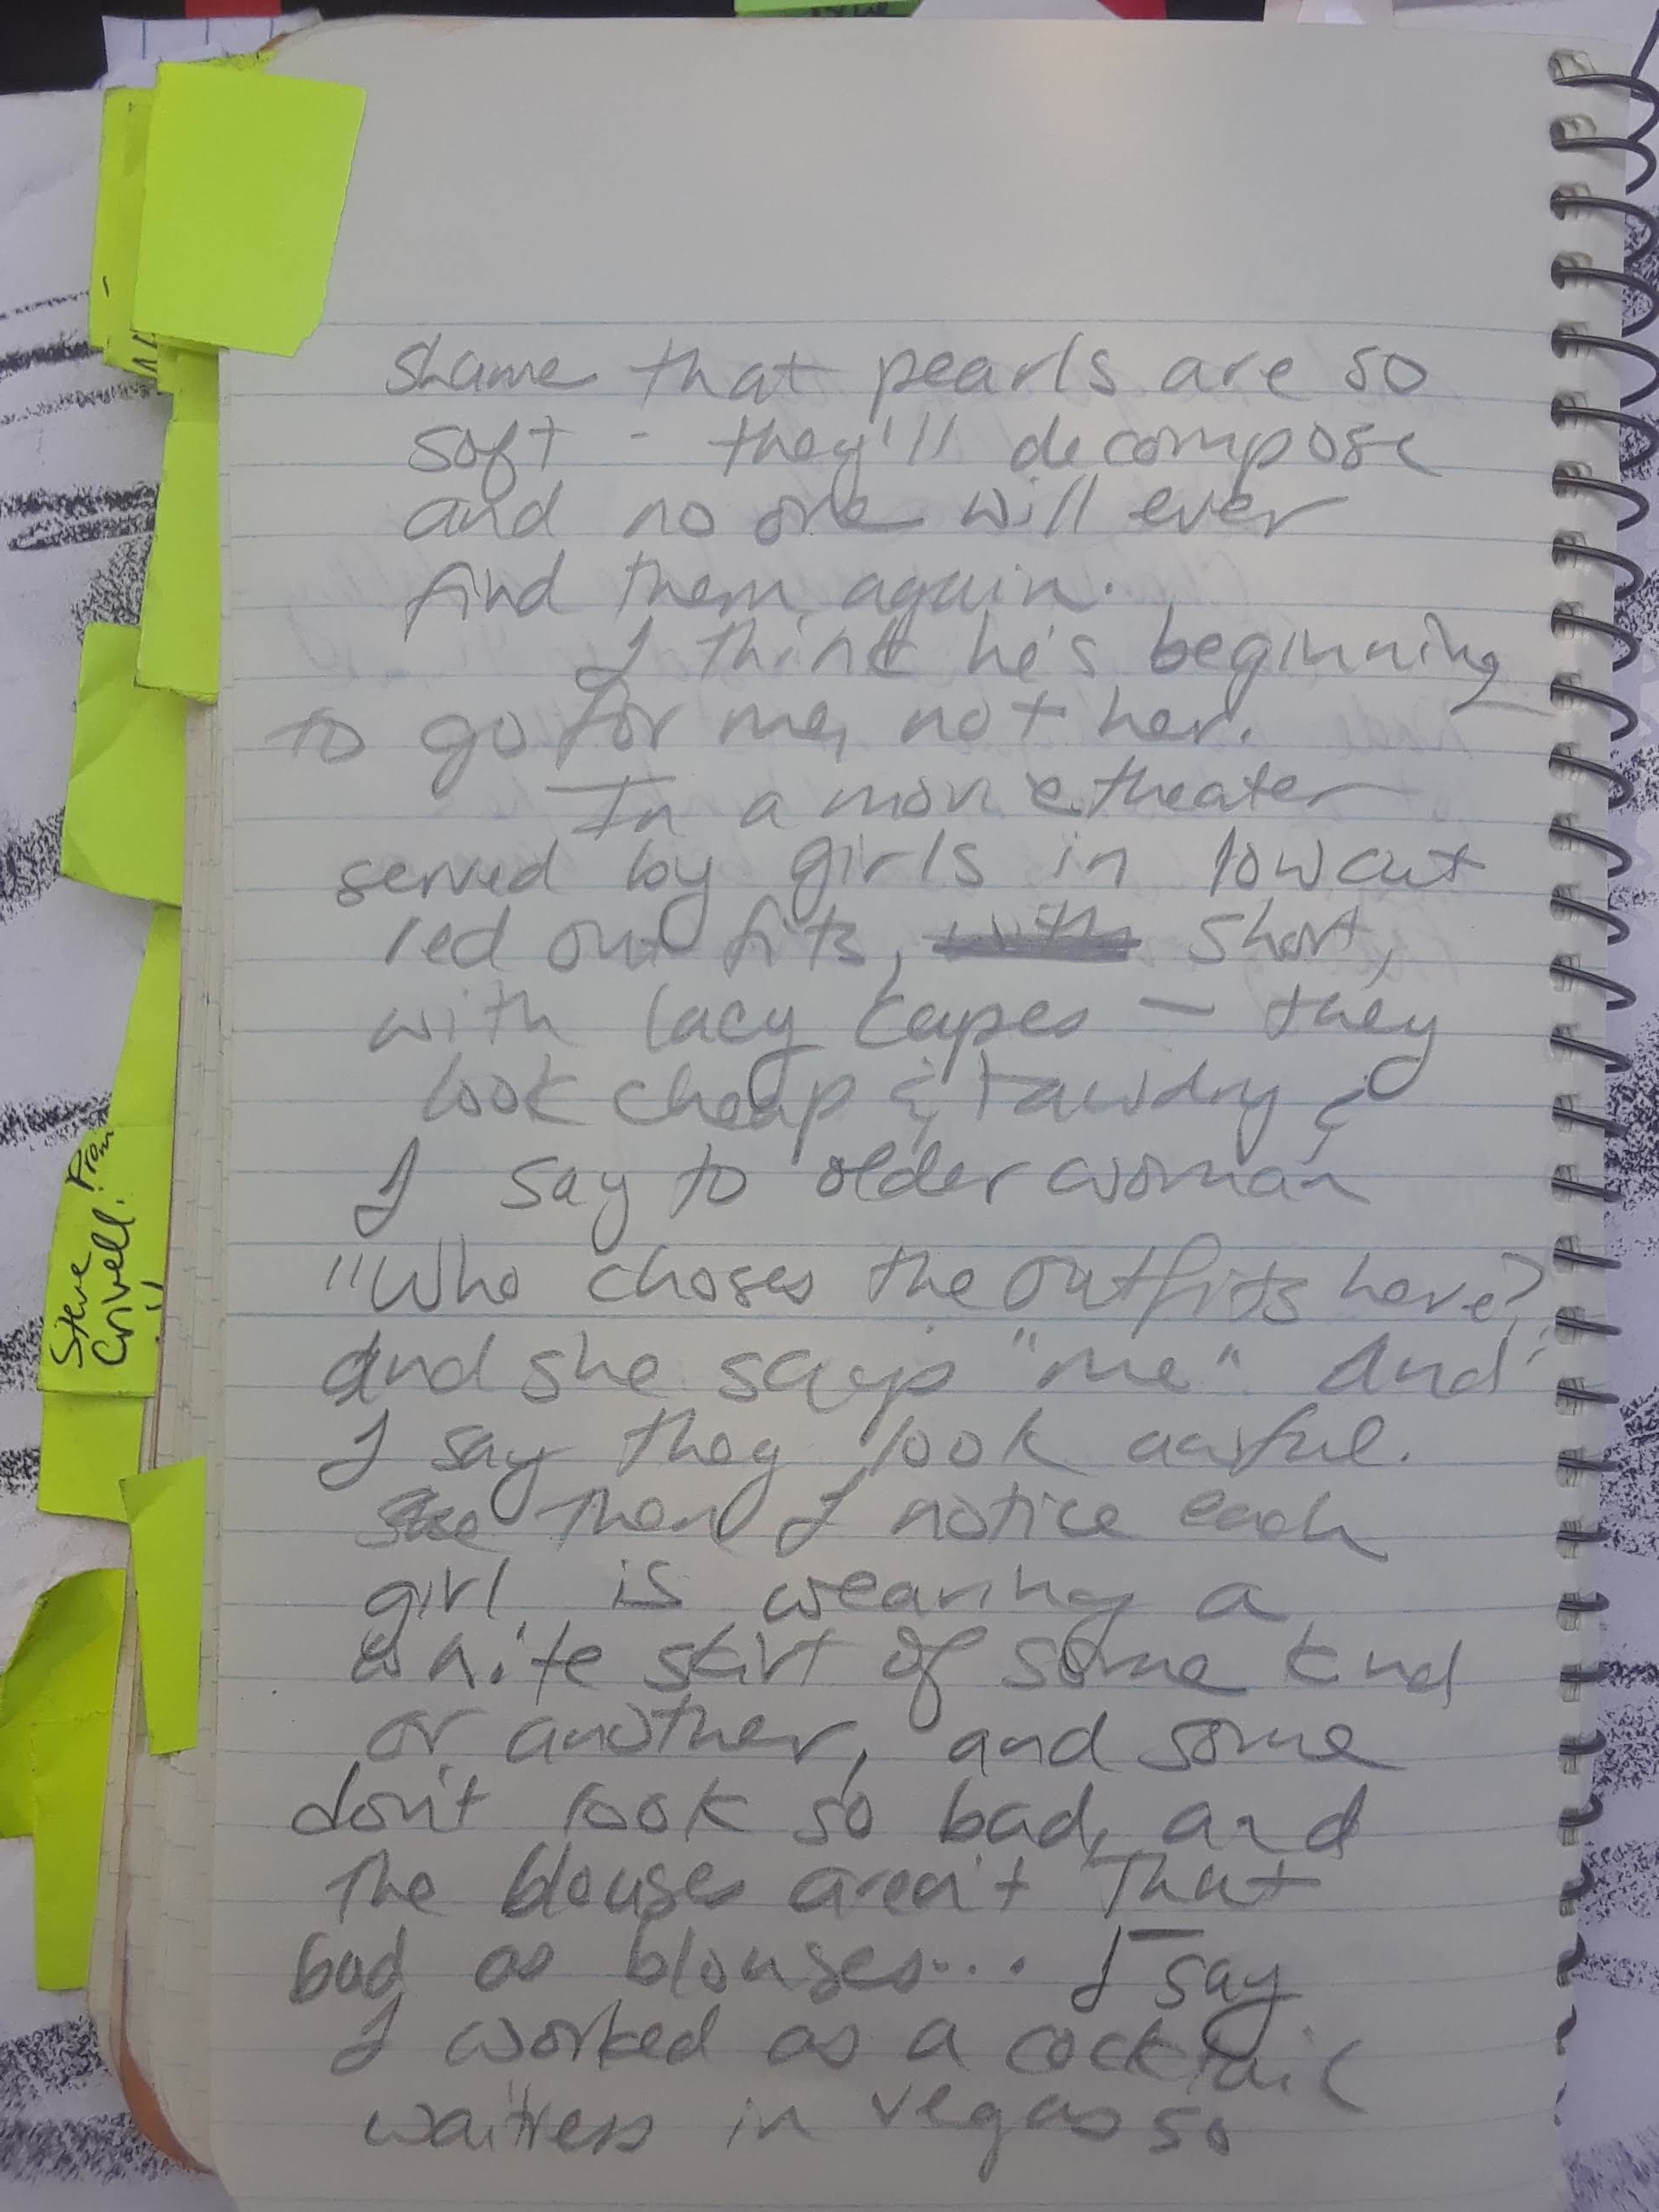 shame that pearls are so
soft - they'll decompose
and no one will ever
find them again.
I think he's beginning
to go for me, not her.
In a movie theater
served by girls in lowcut
red outfits, with short,
with lacy capes — they
look cheap & tawdry &
I say to older woman
"Who choses the outfits here?"
And she says "me" And
I say they look awful.
She Then I notice each
girl is wearing a
white skirt of some kind
or another, and some
don't look so bad, and
The blouses aren't That
bad as blouses.... I say
I worked as a cocktail
waitress in Vegas so
Steve
Crivell!